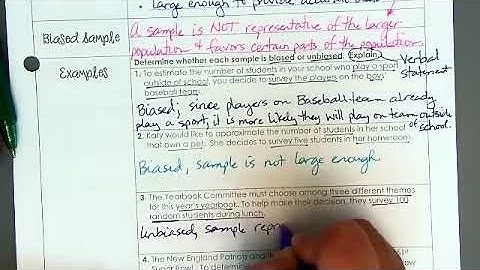 large enough to provide
Biased Sample
A sample is NOT representative of the larger
population & favors certain parts of the population.
Examples
Determine whether each sample is biased or unbiased. Explain.
Verbal
statement
1. To estimate the number of students in your school who play a sport
outside of school, you decide to survey the players on the boys'
baseball team.
Biased; since players on Baseball team already
play a sport, it is more likely they will play on team outside
of school.
2. Katy would like to approximate the number of students in her school
that own a pet. She decides to survey five students in her homeroom.
Biased, sample is not large enough
3. The Yearbook Committee must choose among three different themes
for this year's yearbook. To help make their decision, they survey 100
random students during lunch.
Unbiased, sample repr
4. The New England Patriots and th
Super Bowl. To determine